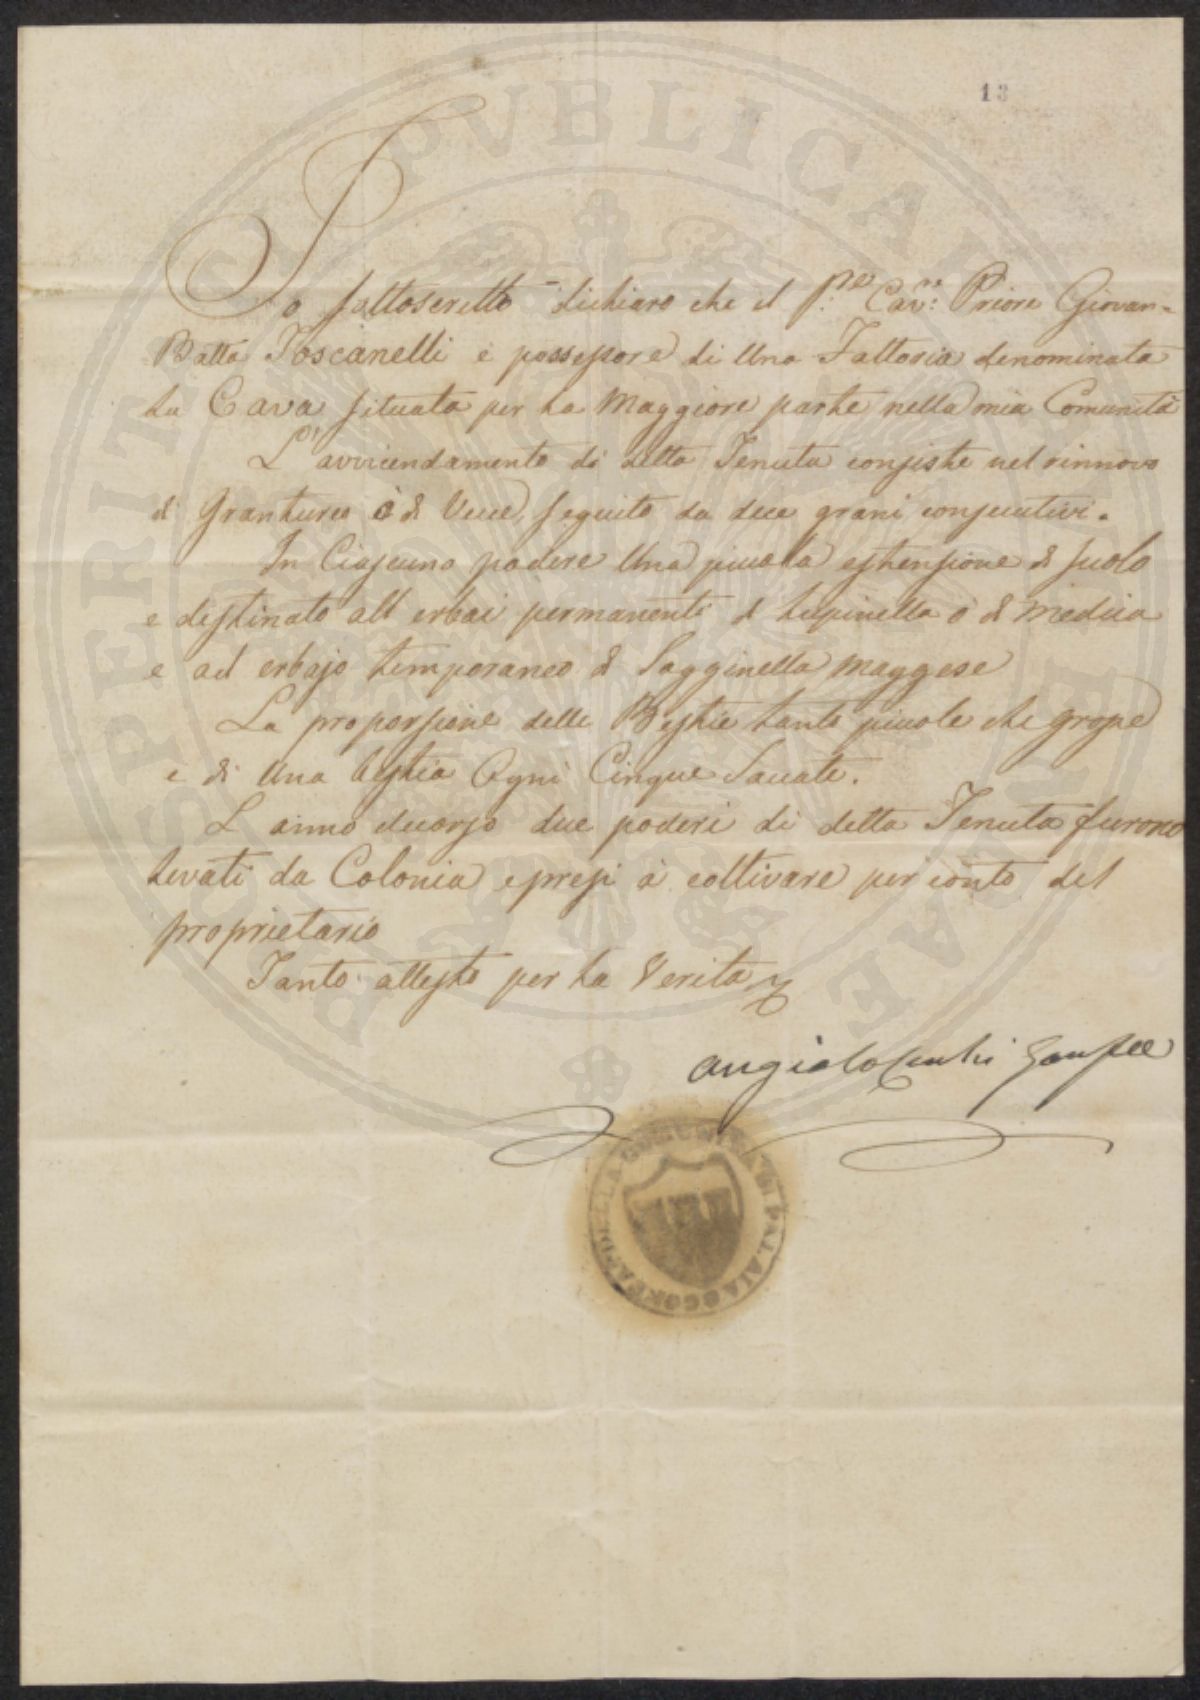 13
Io sottoscritto dichiaro che il Cav.re Priore Giovan-
Batta Toscanelli è possessore di Una Fattoria denominata
La Cava situata per la Maggiore parte nella mia Comunità
L'avvicendamento di detta Tenuta consiste nel rinnovo
di Granturco è di Vecce, seguito da due grani consecutivi.
In Ciascuno podere Una piccola estensione di suolo
e destinato all erbai permanenti di Lupinella o di Medica
e ad erbajo temporaneo di Sagginella maggese
La proporsione delle Bestie tanto picole che grosse
e di Una bestia Ogni Cinque Saccate.
L anno decorso due poderi di detta Tenuta furono
levati da Colonia e presi à coltivare per conto del
proprietario
Tanto attesto per la Verità
Angiolo
COMUNITA DI PALAIA
BONONIAE PUBLICAE PROSPERITATI